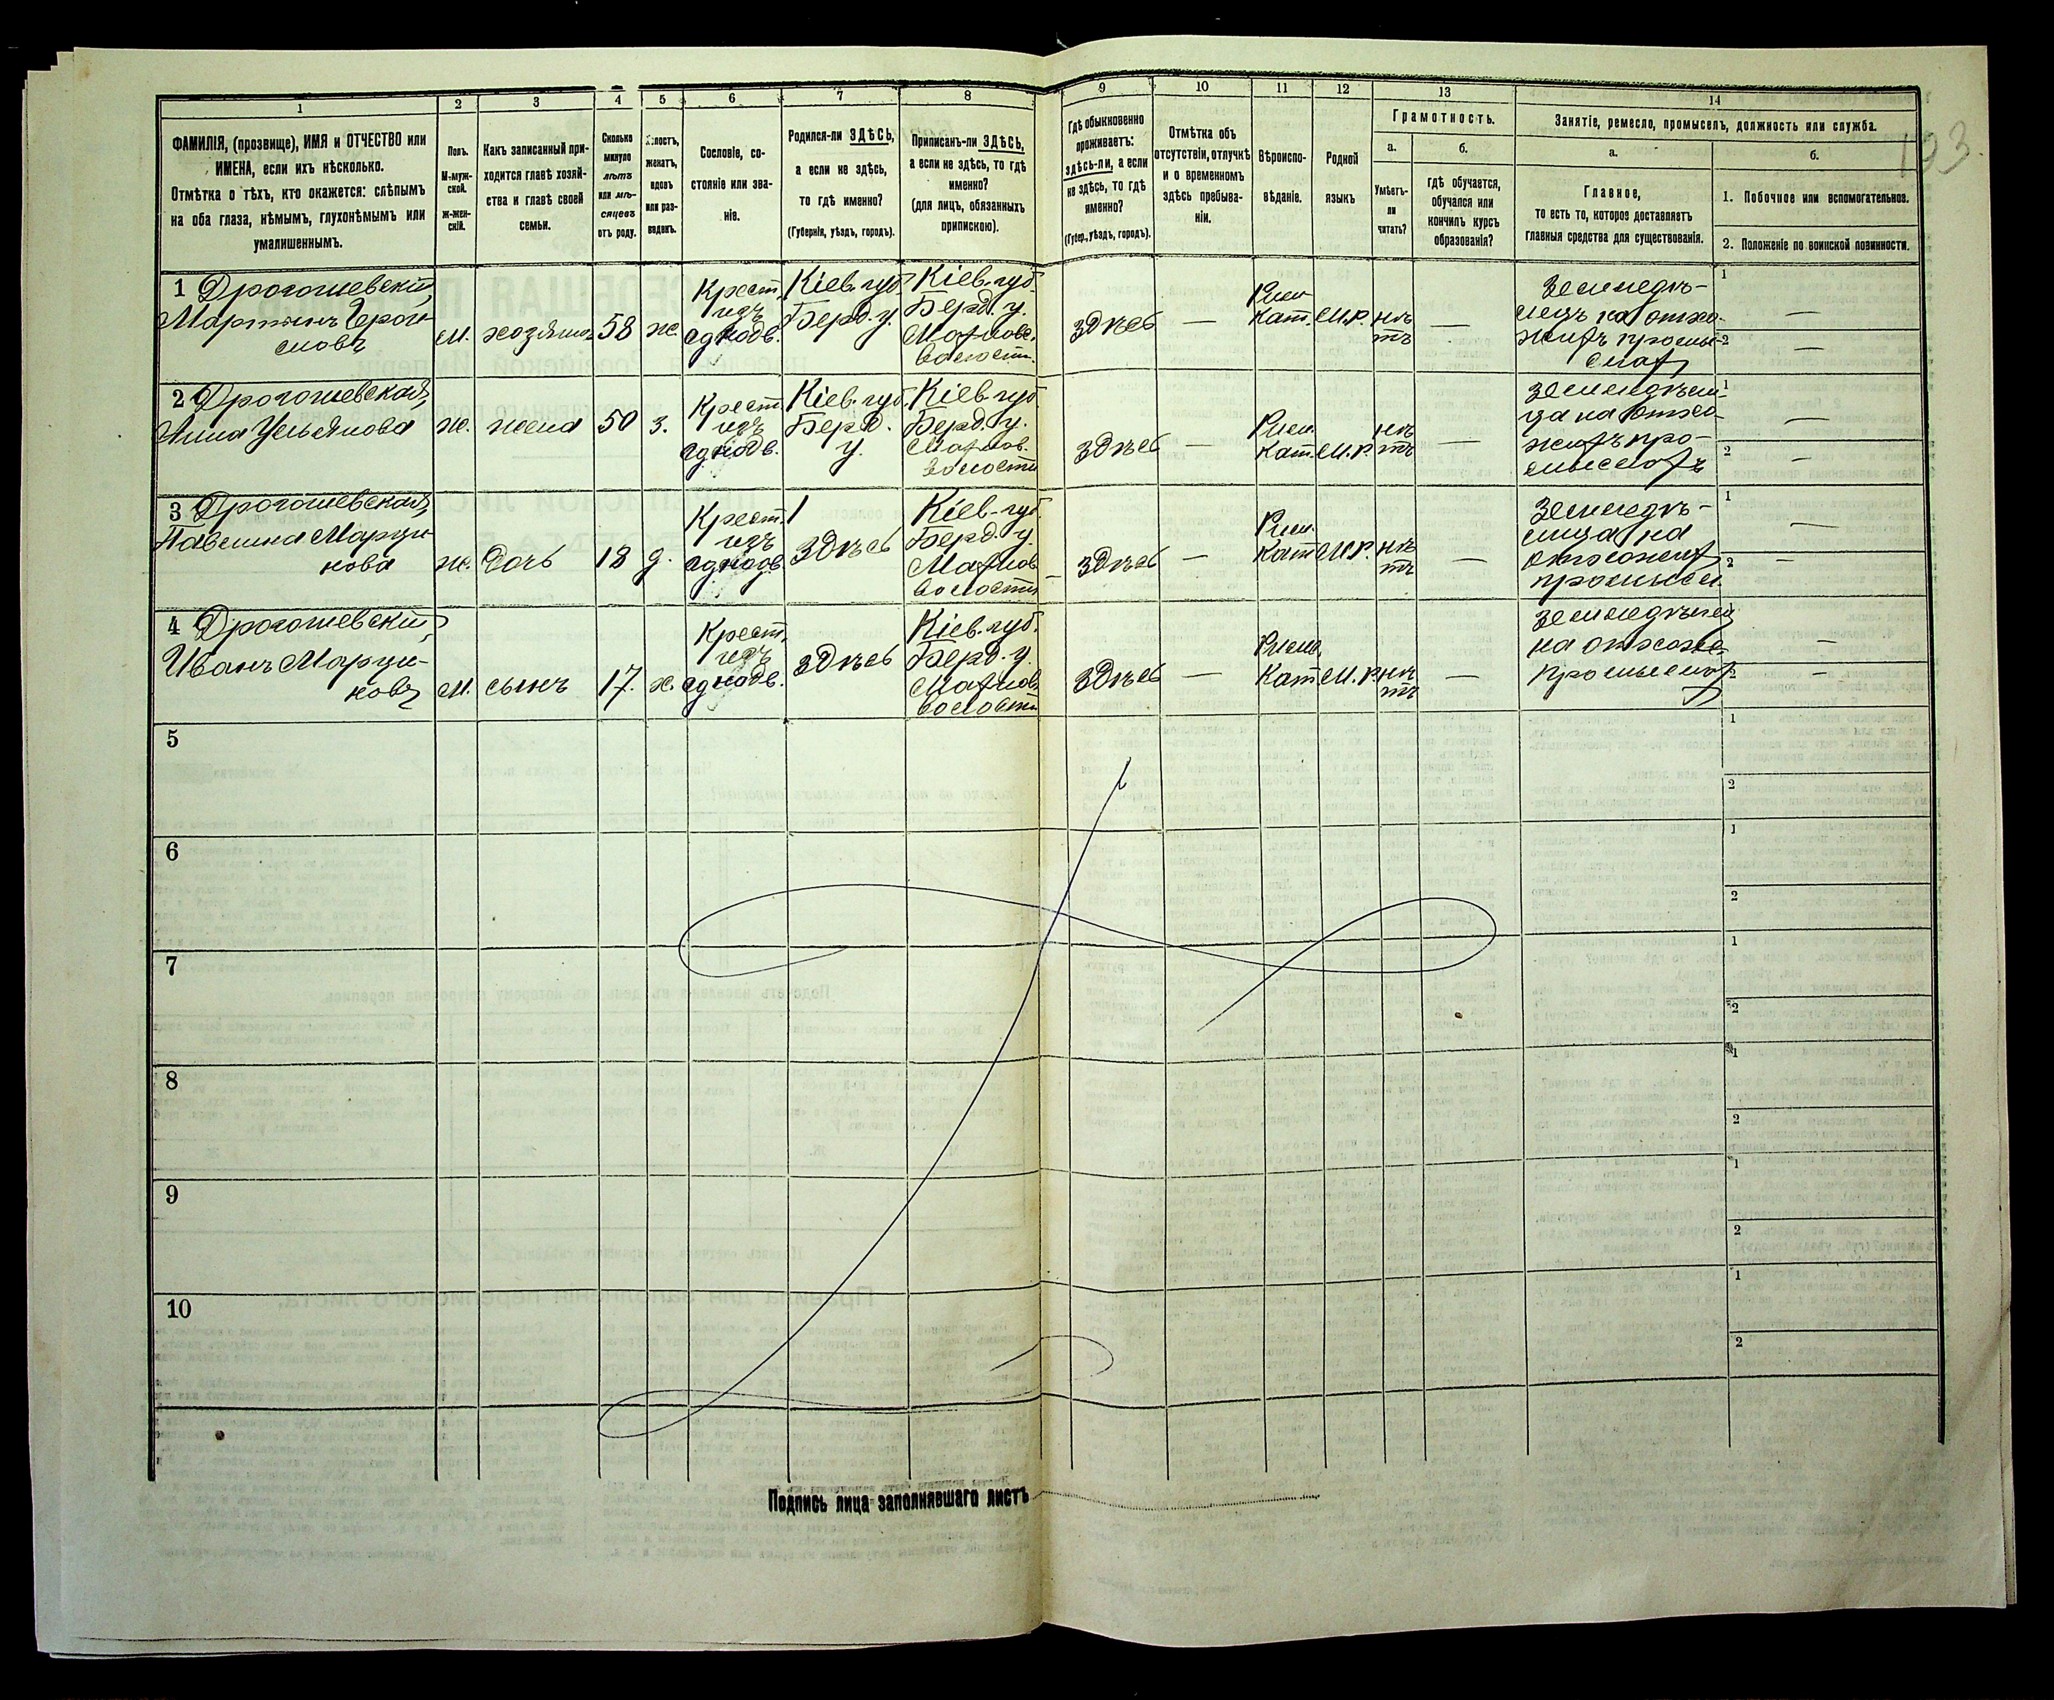 193.
1
2
3
4
5
6
7
8
9
10
11
12
13
14
ФАМИЛІЯ, (прозвище), ИМЯ и ОТЧЕСТВО или
ИМЕНА, если ихъ нѣсколько.
Отмѣтка о тѣхъ, кто окажется: слѣпымъ
на оба глаза, нѣмымъ, глухонѣмымъ или
умалишеннымъ.
Полъ.
М-муж-
ской.
ж-жен-
скій.
Какъ записанный при-
ходится главѣ хозяй-
ства и главѣ своей
семьи.
Сколько
минуло
лѣтъ
или мѣ-
сяцевъ
отъ роду.
холостъ,
женатъ,
вдовъ
или раз-
веденъ.
Сословіе, со-
стояніе или зва-
ніе.
Родился-ли ЗДѢСЬ,
а если не здѣсь,
то гдѣ именно?
(Губернія, уѣздъ, городъ).
Приписанъ-ли ЗДѢСЬ,
а если не здѣсь, то гдѣ
именно?
(для лицъ, обязанныхъ
припискою).
Гдѣ обыкновенно
проживаетъ:
здѣсь-ли, а если
не здѣсь, то гдѣ
именно?
(Губер., уѣздъ, городъ).
Отмѣтка объ
отсутствіи, отлучкѣ
и о временномъ
здѣсь пребыва-
ніи.
Вѣроиспо-
вѣданіе.
Родной
языкъ
Грамотность.
а.
Умѣетъ-
ли
читать?
б.
гдѣ обучается,
обучался или
кончилъ курсъ
образованія?
Занятіе, ремесло, промыселъ, должность или служба.
а.
Главное,
то есть то, которое доставляетъ
главныя средства для существованія.
б.
1. Побочное или вспомогательное.
2. Положеніе по воинской повинности.
1 Дрогошевскій
м. хозяинъ 58 ж.
Крест.
изъ
однодв.
Кіев. губ.
Берд. у.
Кіев. губ.
Берд. у.
волости.
здѣсь —
Рим.
Кат. М.Р.
нѣ
тъ
—
Земледѣ-
лецъ на отхо-
жихъ промы-
слах
1 —
2 —
2 Дрогошевская
Анна Ульянова
ж. жена 50 з.
Крест.
изъ
однодв.
Кіев. губ.
Берд.
у.
Кіев. губ.
Берд. у.
волости
здѣсь —
Рим.
Кат. М.Р.
нѣ
тъ
—
земледѣли-
ца на отхо-
жихъ про-
мыслахъ
1 —
2 —
3 Дрогошевская
Павлина Марци-
нова
ж. дочь 18 д.
Крест.
изъ
однодв.
здѣсь
Кіев. губ.
Берд. у.
волости
здѣсь —
Рим.
Кат. М.Р.
нѣ
тъ
—
земледѣ-
лица на
отхожих
промысл.
1 —
2 —
4 Дрогошевскій
Иванъ Марци-
новъ
м. сынъ 17. х.
Крест.
изъ
однодв.
здѣсь
Кіев. губ.
Берд. у.
волости
здѣсь —
Римо
Кат. М.Р.
нѣ
тъ
—
земледѣлец
на отхожи-
промыслах
—
2 —
5
1
2
6
1
2
7
1
2
8
1
2
9
1
2
10
1
2
Подпись лица заполнявшаго листъ